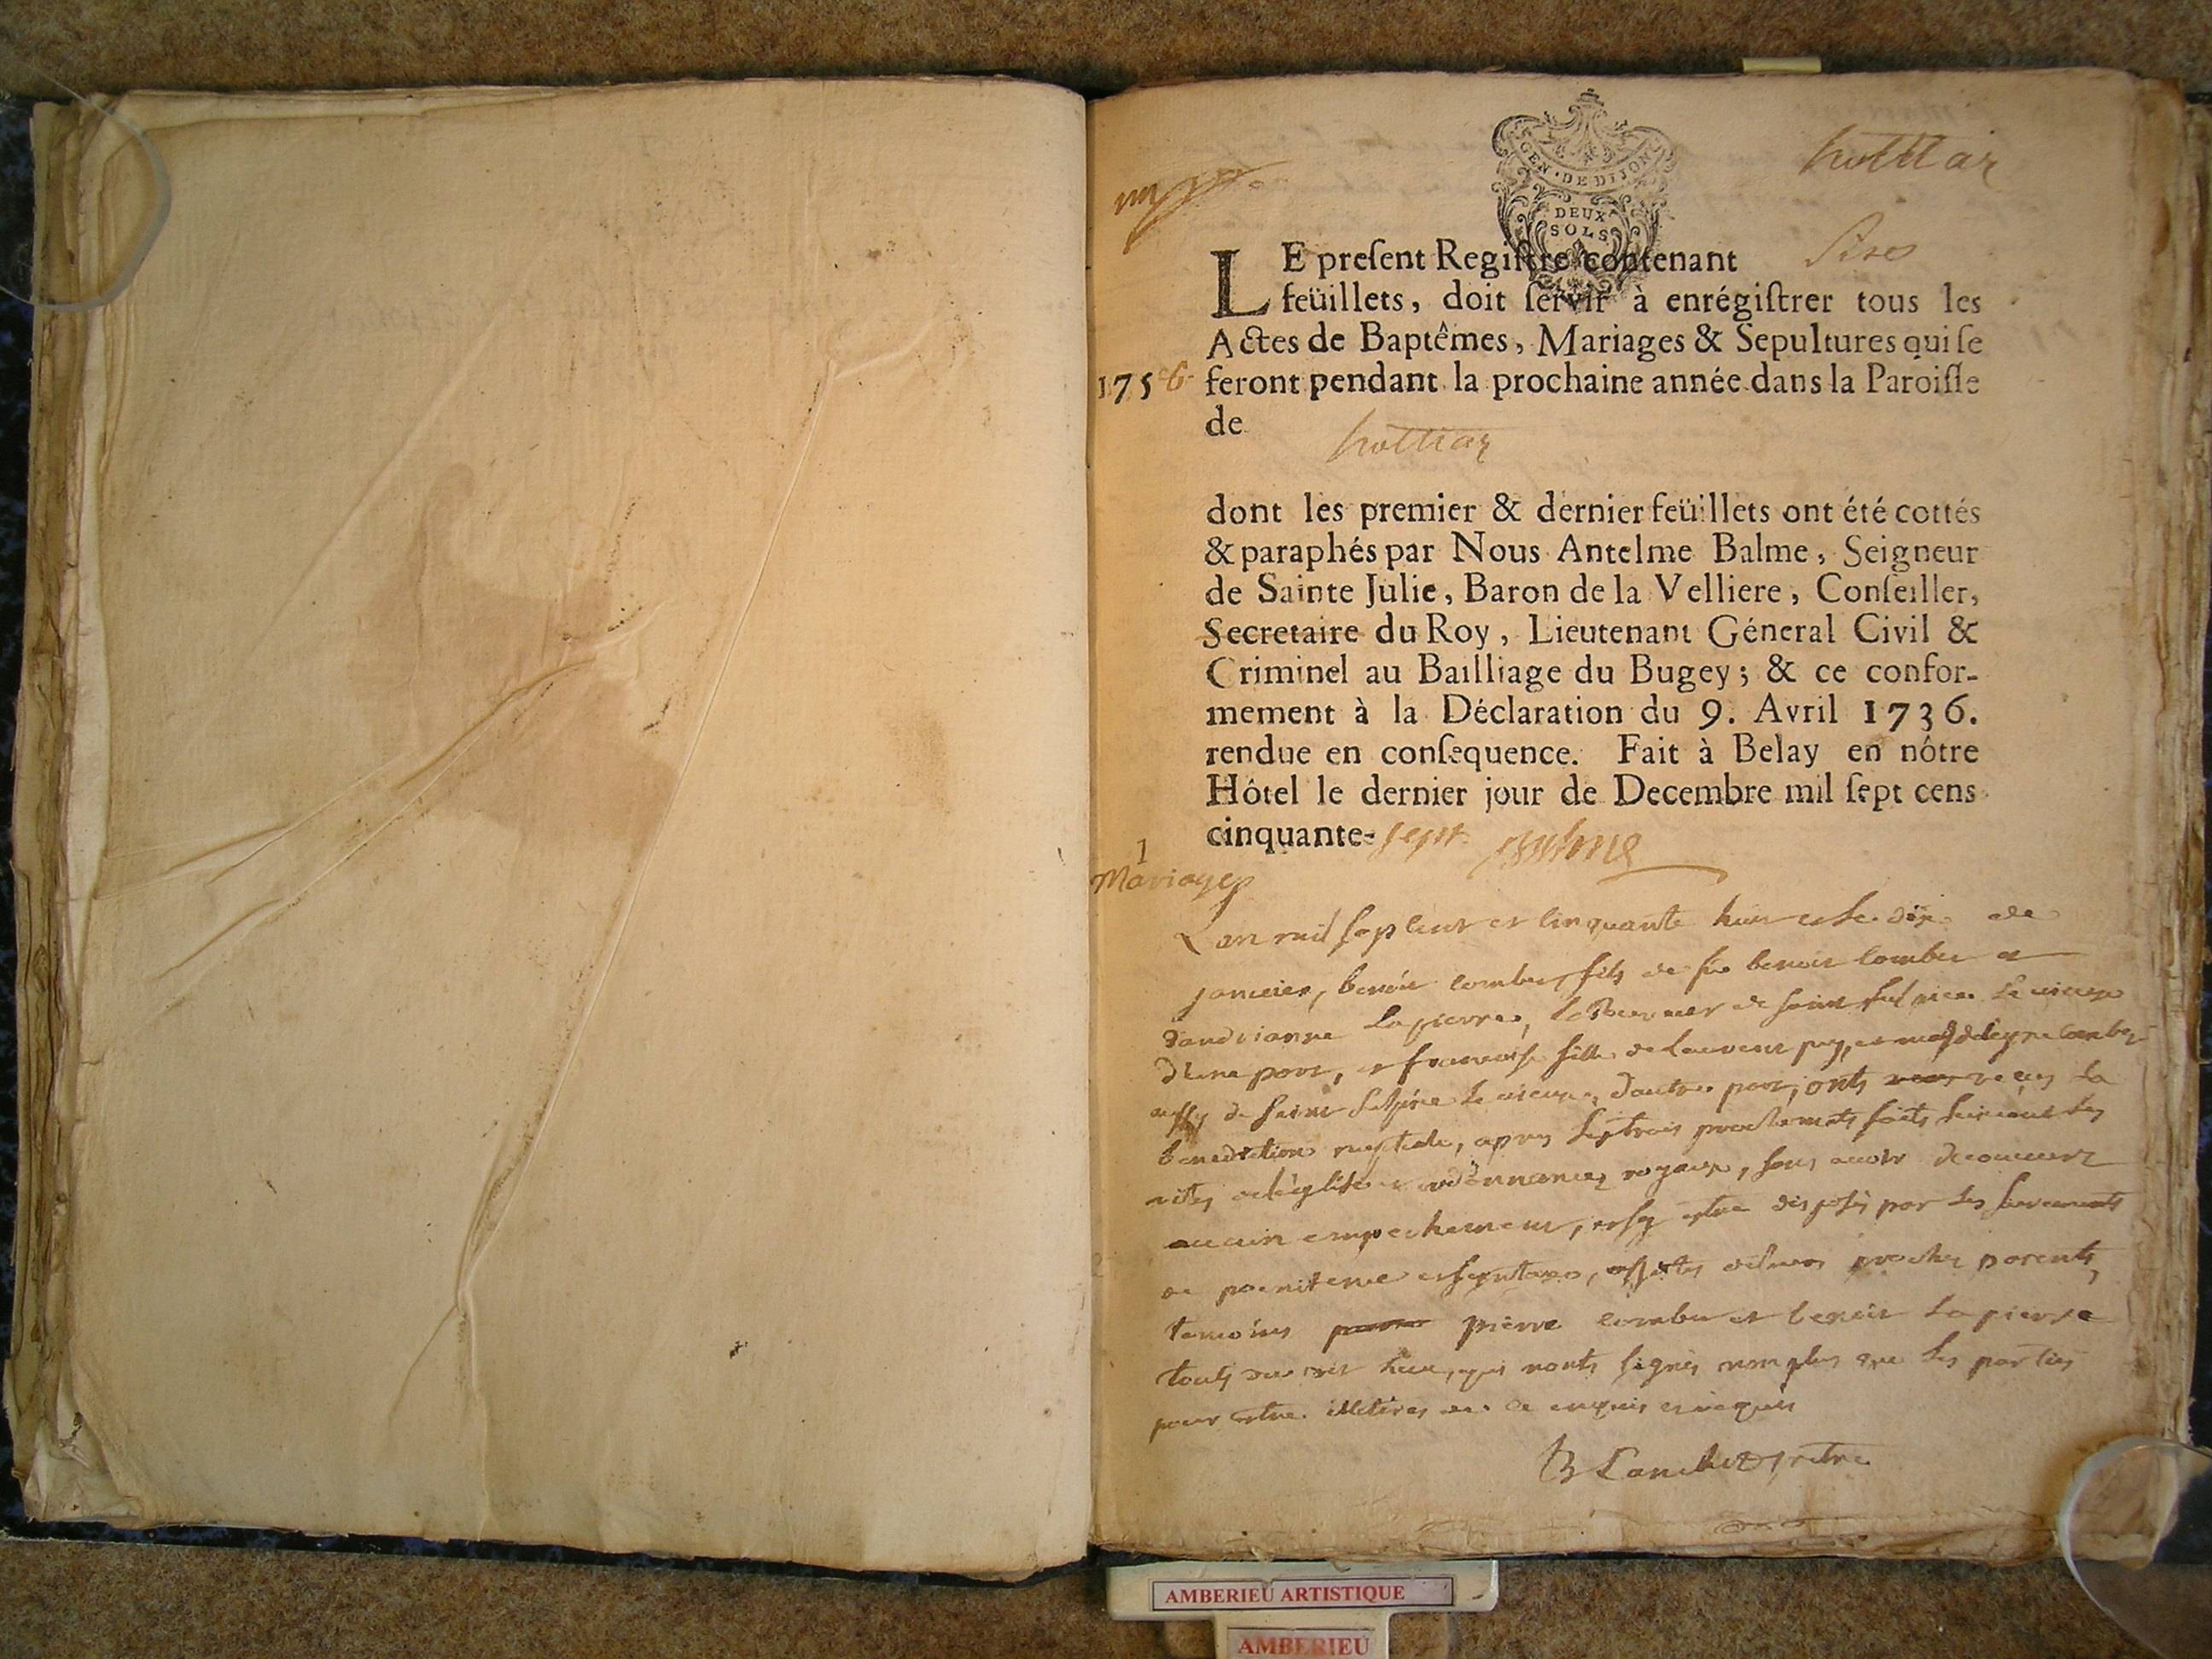 hottiar
GEN · DE DIJON
DEUX
SOLS
LE preſent Regiſtre contenant
feüillets, doit ſervir à enrégiſtrer tous les
Actes de Baptêmes, Mariages & Sepultures qui ſe
175 feront pendant la prochaine année dans la Paroiſſe
de
hottiar
dont les premier & dernier feüillets ont été cottés
& paraphés par Nous Antelme Balme, Seigneur
de Sainte Julie, Baron de la Velliere, Conſeiller,
Secretaire du Roy, Lieutenant Géneral Civil &
Criminel au Bailliage du Bugey; & ce confor-
mement à la Déclaration du 9. Avril 1736.
rendue en conſequence. Fait à Belay en nôtre
Hôtel le dernier jour de Decembre mil ſept cens
cinquante-sept Balme
1
Mariages
L'an mil sept cent et cinquante huit et le dix de
janvier, benoit combet fils de feu benoit combet et
d'andrianne lapierre, de saint sulpice le vieux
d'une part, et francoise fille de laurent puy, et
de saint sulpice le vieux, d'autre part, onts receus la
benediction nuptiale, apres les trois proclamats faits suivant les
rites de l'eglise et ordonnances royaux, sans avoir decouvert
aucun empechement, estre disposés par les sacrements
de penitence, proches parents,
temoins pierre combet et benoit lapierre
touts du dit lieu, qui n'onts signés non plus que les parties
pour estre illetirés de ce enquis et requis